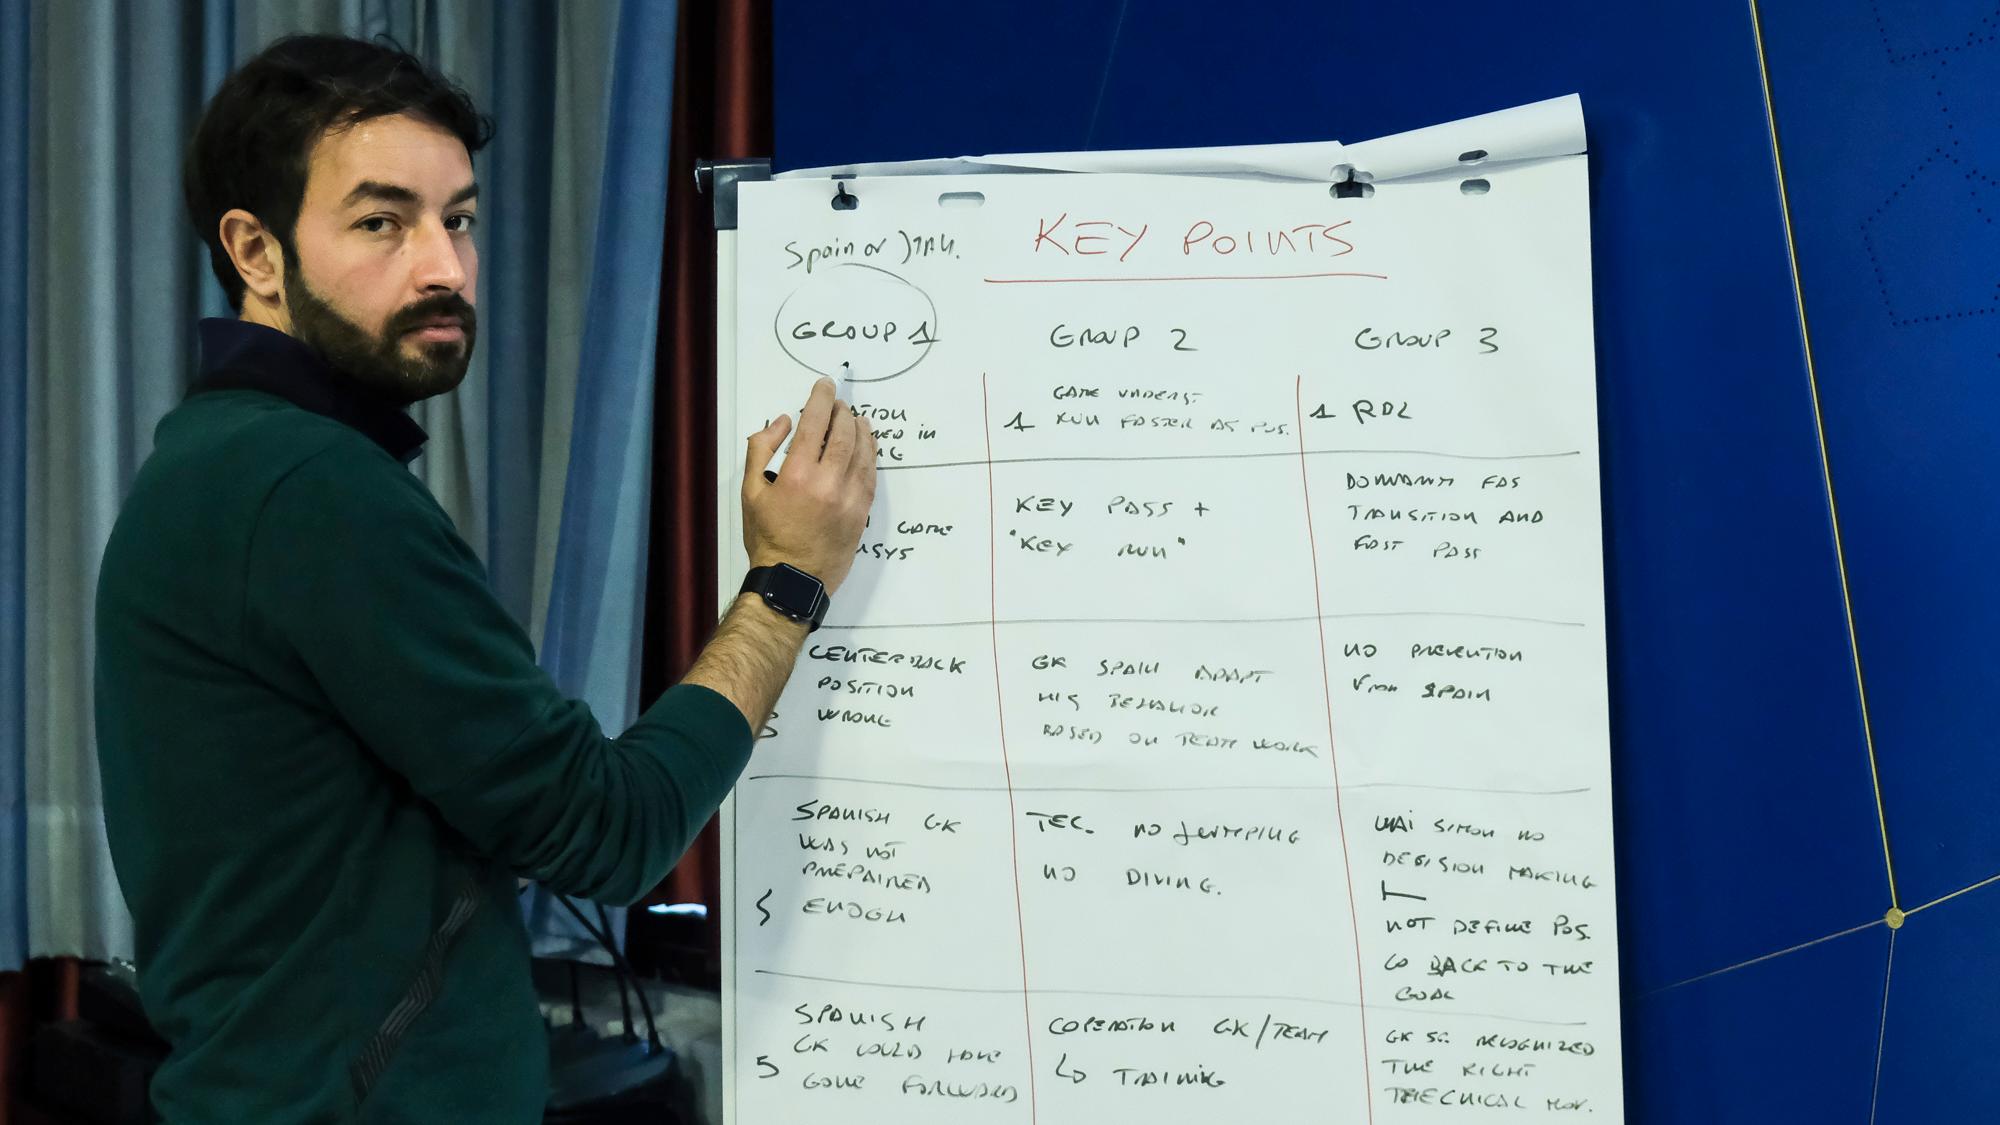 Spain or ITALY.
KEY POINTS
GROUP 1
GROUP 2
GROUP 3
GAME UNDERST.
1 RUN FASTER AS POS.
1 RDL
in
GAME
KEY PASS +
"KEY RUN"
FAS
TRANSITION AND
FAST PASS
CENTERBACK
POSITION
3 WRONG
GK SPAIN ADAPT
HIS BEHAVIOR
BASED ON TEAM WORK
NO PREVENTION
From SPAIN
SPANISH GK
WAS NOT
PREPAIRED
ENOGH
TEC. NO JUMPING
NO DIVING.
UNAI SIMON NO
DECISION MAKING
NOT DEFINE POS.
BACK TO THE
GOAL
SPANISH
GK COULD HAVE
5 GONE FORWARD
COPERATION GK/TEAM
TRAINING
GK RECOGNIZED
THE RIGHT
TEECHICAL MOV.